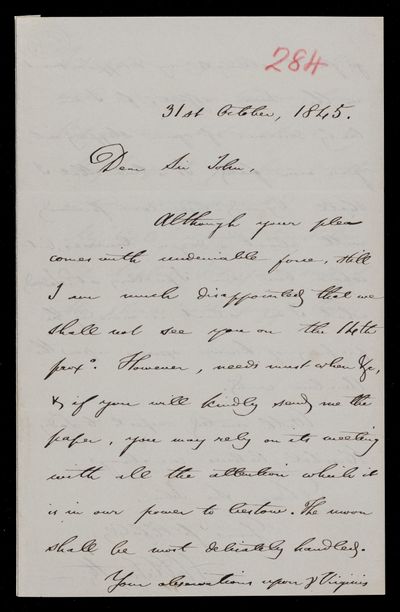 284
31st October, 1845.
Dear Sir John,
Although your plea
comes with undeniable force, still
I am much disappointed that we
shall not see you on the 14th
proxº. However, needs must when &c,
& if you will kindly send me the
paper, you may rely on its meeting
with all the attention which it
is in our power to bestow. The moon
shall be most delicately handled.
Your observations upon γ Virginis